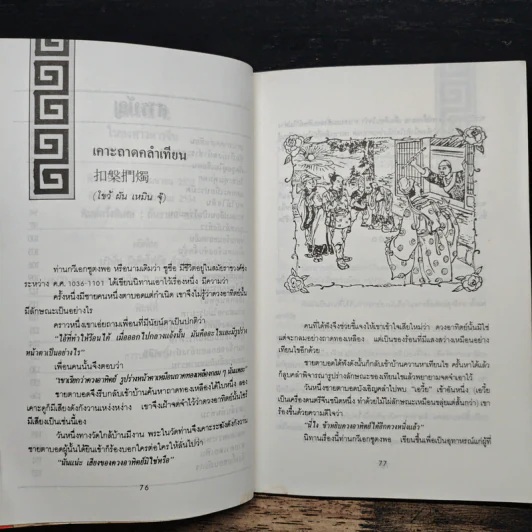 เคาะถาดคลำเทียน
扣槃捫燭
(โขว้ ผัน เหมิน จู๋)
ท่านกวีเอกซูตงพอ หรือนามเดิมว่า ซูซื่อ มีชีวิตอยู่ในสมัยราชวงศ์ซ้อง
ระหว่าง ค.ศ. 1036-1101 ได้เขียนนิทานเอาไว้เรื่องหนึ่ง มีความว่า
ครั้งหนึ่งมีชายคนหนึ่งตาบอดแต่กำเนิด เขาจึงไม่รู้ว่าดวงอาทิตย์นั้น
มีลักษณะเป็นอย่างไร
คราวหนึ่งเขาเอ่ยถามเพื่อนที่มีนัยน์ตาเป็นปกติว่า
"ไอ้ที่ทำให้ร้อนได้ เมื่อออกไปกลางแจ้งนั้น มันคืออะไรและมีรูปร่าง
หน้าตาเป็นอย่างไร"
เพื่อนคนนั้นจึงตอบว่า
ชายตาบอดจึงรีบกลับเข้าบ้านค้นหาถาดทองเหลืองได้ใบหนึ่ง ลอง
เคาะดูก็มีเสียงดังกังวานแหง่งหง่าง เขาจึงเฝ้าจดจำไว้ว่าดวงอาทิตย์นั้นไซร้
มีเสียงเป็นเช่นนี้เอง
วันหนึ่งทางวัดใกล้บ้านมีงาน พระในวัดท่านจึงเคาะระฆังดังกังวาน
ชายตาบอดผู้นั้นได้ยินเข้าก็ร้องบอกใครต่อใครให้ลั่นไปว่า
"นั่นแน่ะ เสียงของดวงอาทิตย์มิใช่หรือ"
76
คนที่ได้ฟังจึงช่วยชี้แจงให้เขาเข้าใจเสียใหม่ว่า ดวงอาทิตย์นั้นมิใช่
แต่จะกลมอย่างถาดทองเหลือง แต่เป็นของร้อนที่มีแสงสว่างเหมือนอย่าง
เทียนไขอีกด้วย
ชายตาบอดได้ฟังดังนั้นก็กลับเข้าบ้านควานหาเทียนไข ครั้นหาได้แล้ว
ก็ลูบคลำพิจารณารูปร่างลักษณะของเทียนไขและพยายามจดจำเอาไว้
วันหนึ่งชายตาบอดบังเอิญคลำไปพบ "เอวี้ย" เข้าอันหนึ่ง (เอวี้ย
เป็นเครื่องดนตรีจีนชนิดหนึ่ง ทำด้วยไม้ไผ่ลักษณะเหมือนขลุ่ยแต่สั้นกว่า) เขา
ร้องขึ้นด้วยความดีใจว่า
"นี่ไง ข้าหยิบดวงอาทิตย์ได้อีกดวงหนึ่งแล้ว"
นิทานเรื่องนี้ท่านกวีเอกซูตงพอ เขียนขึ้นเพื่อเป็นอุทาหรณ์แก่ผู้ที่
77